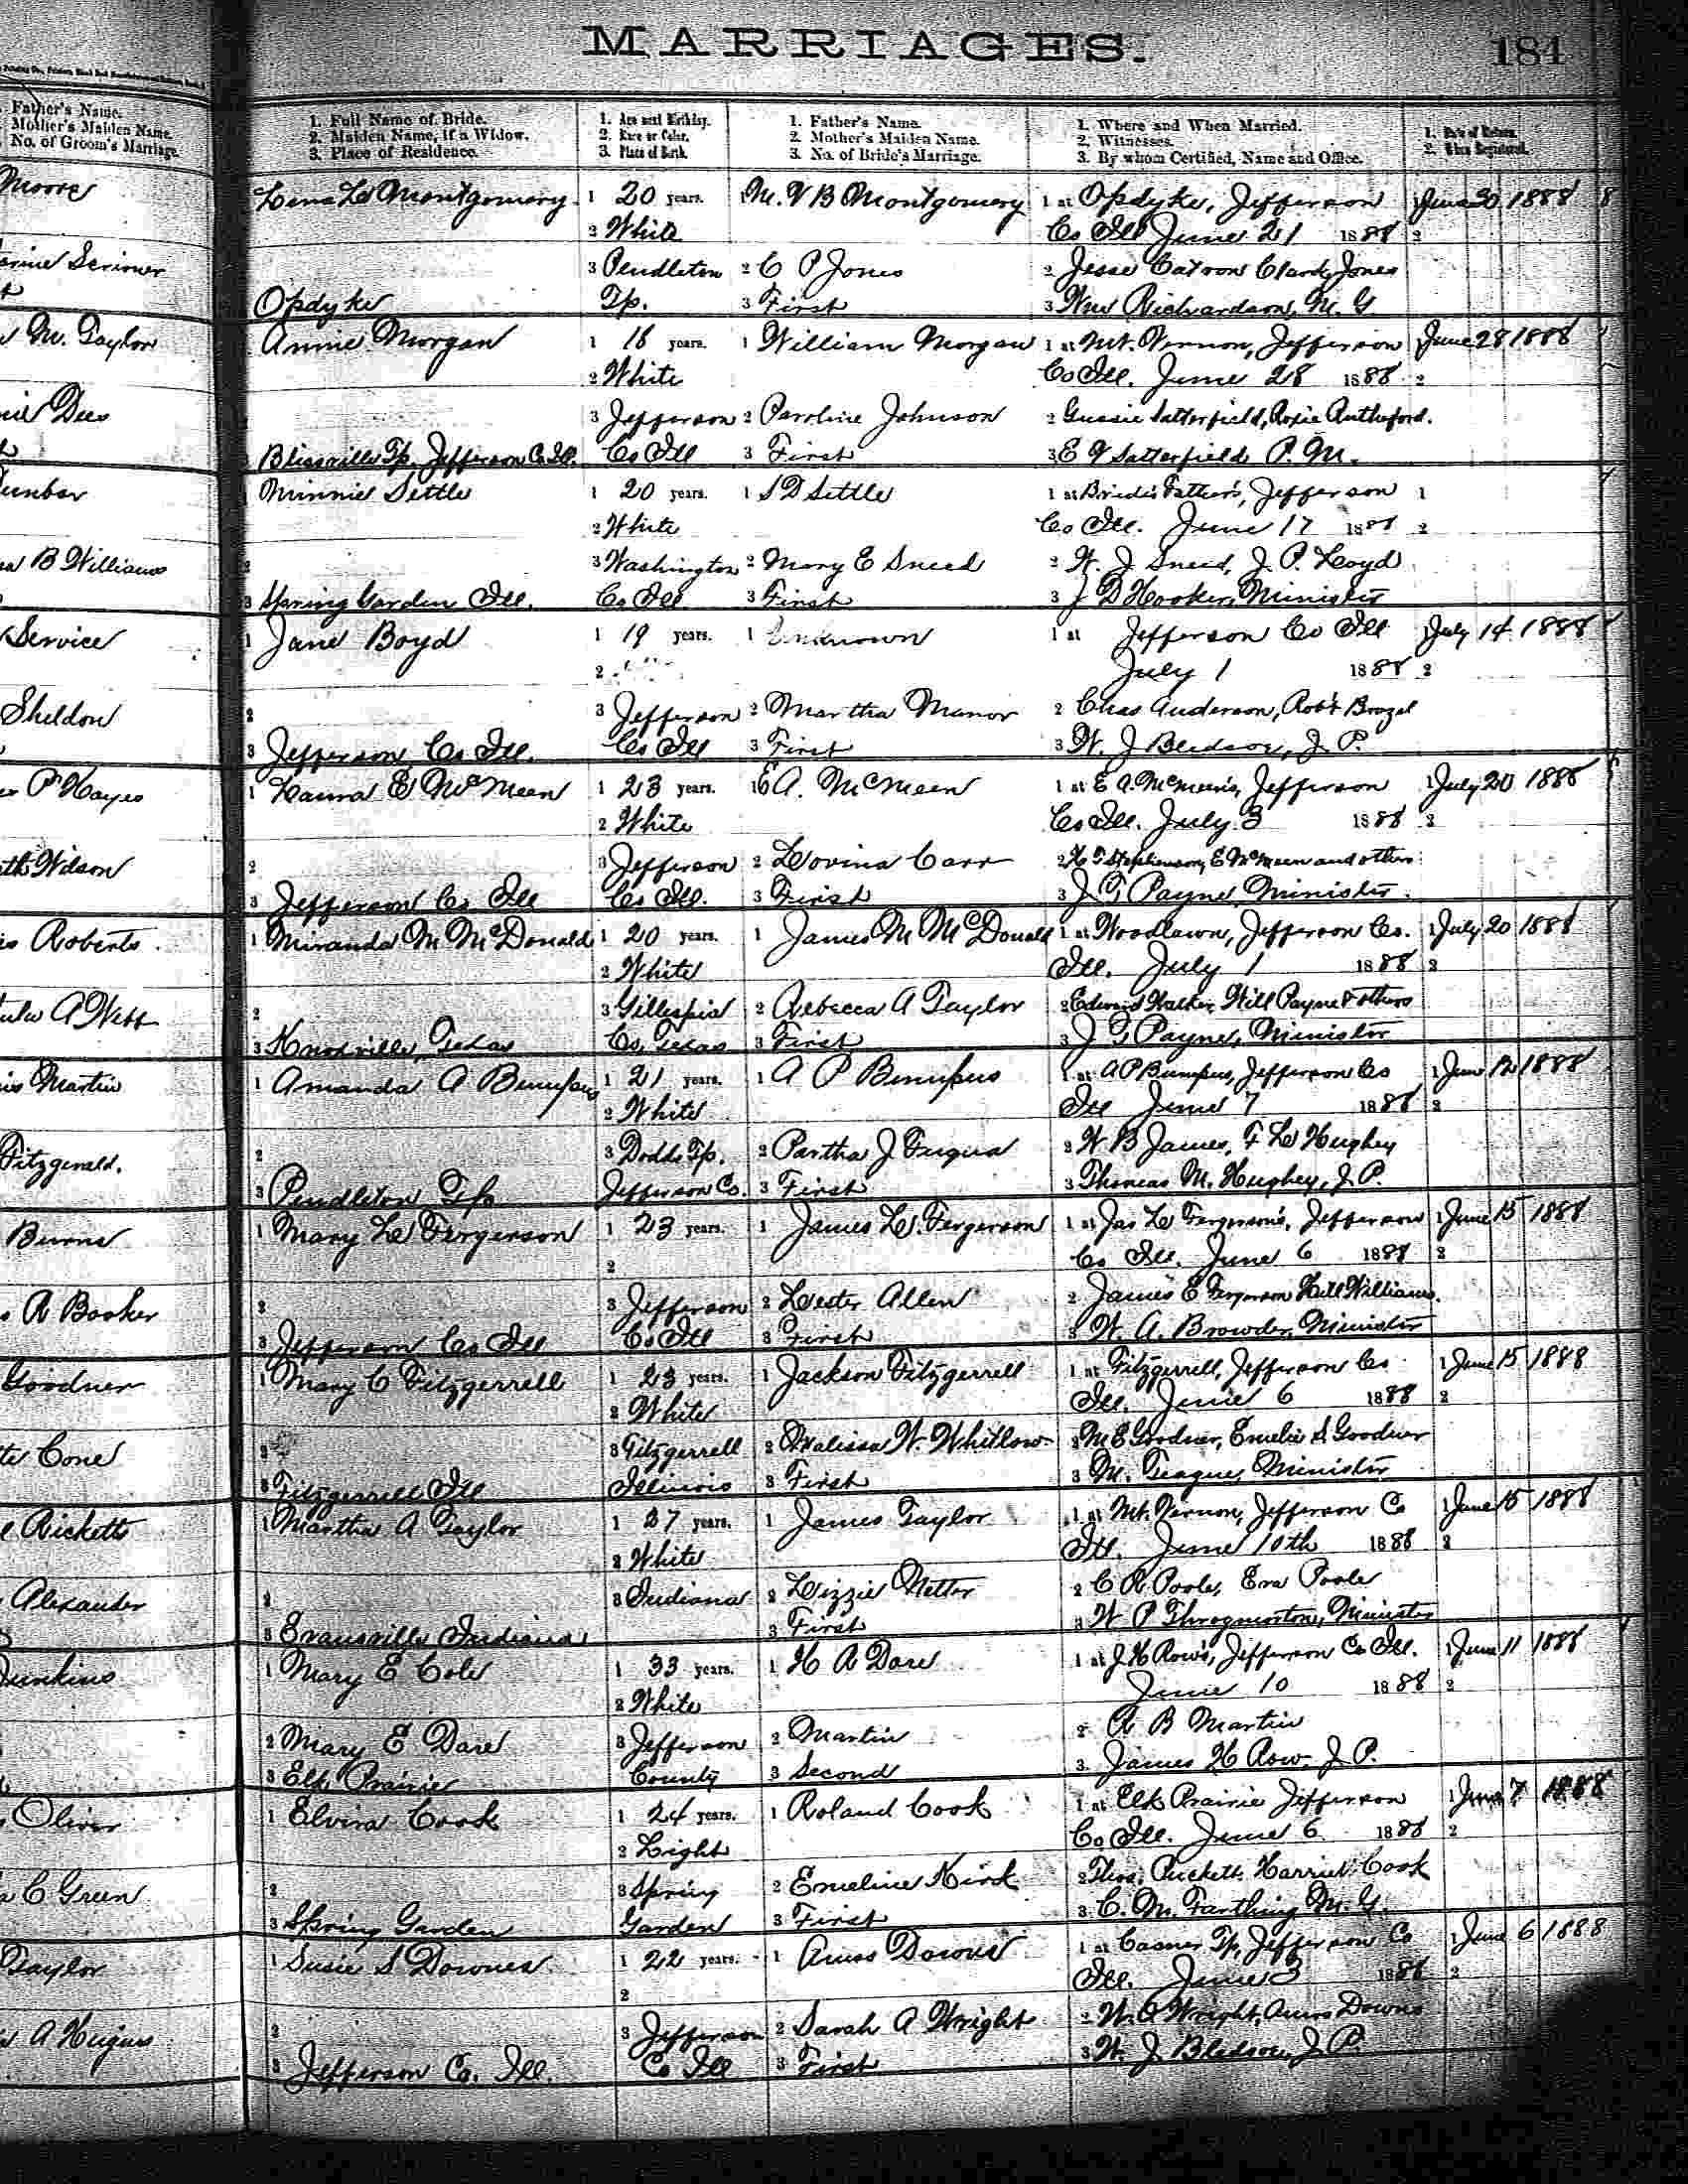 MARRIAGES.
184
Father's Name.
Mother's Maiden Name.
No. of Groom's Marriage.
1. Full Name of Bride.
2. Maiden Name, if a Widow.
3. Place of Residence.
1. Age next Birthday.
2. Race or Color.
3. Place of Birth.
1. Father's Name.
2. Mother's Maiden Name.
3. No. of Bride's Marriage.
1. Where and When Married.
2. Witnesses.
3. By whom Certified, Name and Office.
1. Date of Return.
2. When Registered.
Moore Montgomery 1 20 years. M. V B Montgomery 1 at Opdyke, Jefferson June 30 1888 8
2 White Co Ill June 21 1888 2
Scrivner 3 Pendleton 2 C P Jones 2 Jesse Clardy Jones
Opdyke Tp. 3 First 3 Richardson, M. G.
M. Taylor Annie Morgan 1 18 years. 1 William Morgan 1 at Mt. Vernon, Jefferson June 28 1888
2 White Co Ill. June 28 1888 2
Dees 3 Jefferson 2 Caroline Johnson 2 Gussie Satterfield, Rosie Rutheford.
Blissville Tp, Jefferson Co Ill. Co Ill 3 First 3 E V Satterfield P. M.
Minnie Settle 1 20 years. 1 S D Settle 1 at Bride's Father's, Jefferson 1
2 White Co Ill. June 17 1888 2
B Williams 2 3 Washington 2 Mary E Sneed 2 W. J Sneed, J. P. Loyd
3 Spring Garden Ill. Co Ill 3 First 3 J D Hooker, Minister
Service 1 Jane Boyd 1 19 years. 1 Unknown 1 at Jefferson Co Ill July 14 1888
2 July 1 1888 2
Sheldon 2 3 Jefferson 2 Martha Manor 2 Chas Anderson, Rob't Brazel
3 Jefferson Co Ill. Co Ill 3 First 3 W. J Bledsoe, J. P.
P Hayes 1 Laura E McMeen 1 23 years. 1 E A. McMeen 1 at E A. McMeen's, Jefferson 1 July 20 1888
2 White Co Ill. July 3 1888 2
Wilson 2 3 Jefferson 2 Lovina Carr 2 Stephenson, E McMeen and others
3 Jefferson Co Ill Co Ill. 3 First 3 J G Payne, Minister.
Roberts. 1 Miranda M McDonald 1 20 years. 1 James M McDonald 1 at Woodlawn, Jefferson Co. 1 July 20 1888
2 White Ill. July 1 1888 2
A Webb 2 3 Gillespie 2 Rebecca A Taylor 2 Edward Walker, Will Payne & others
3 Knoxville, Texas Co, Texas 3 First 3 J G Payne, Minister
Martin 1 Amanda A Bumpus 1 21 years. 1 A P Bumpus 1 at A P Bumpus, Jefferson Co 1 June 12 1888
2 White Ill June 7 1888 2
Fitzgerald. 2 3 Dodds Tp. 2 Partha J Fuqua 2 W B James, F L Hughey
3 Pendleton Tp Jefferson Co. 3 First 3 Thomas M. Hughey, J. P.
Burns 1 Mary L Fergerson 1 23 years. 1 James L. Fergerson 1 at Jas L Fergerson's, Jefferson 1 June 15 1888
2 Co Ill. June 6 1888 2
A Booker 2 3 Jefferson 2 Lester Allen 2 James E Fergerson Williams.
3 Jefferson Co Ill Co Ill 3 First 3 W. A. Browder, Minister
Goodner 1 Mary C Fitzgerrell 1 23 years. 1 Jackson Fitzgerrell 1 at Fitzgerrell, Jefferson Co 1 June 15 1888
2 White Ill. June 6 1888 2
Cone 2 3 Fitzgerrell 2 W. Whitlow 2 M E Goodner, Emelie S. Goodner
3 Fitzgerrell Ill Illinois 3 First 3 M. Teague, Minister
Ricketts 1 Martha A Taylor 1 27 years. 1 James Taylor 1 at Mt. Vernon, Jefferson Co 1 June 15 1888
2 White Ill. June 10th 1888 2
Alexander 2 3 Indiana 2 Lizzie Netter 2 C R Poole, Eva Poole
3 Evansville Indiana 3 First 3 W P Throgmorton, Minister
Junkins 1 Mary E Cole 1 33 years. 1 H A Dare 1 at J H Row's, Jefferson Co Ill. 1 June 11 1888
2 White June 10 1888 2
2 Mary E Dare 3 Jefferson 2 Martin 2 A B Martin
3 Elk Prairie County 3 Second 3 James H Row, J. P.
Oliver 1 Elvira Cook 1 24 years. 1 Roland Cook 1 at Elk Prairie Jefferson 1 June 7 1888
2 Light Co Ill. June 6 1888 2
C Green 2 3 Spring 2 Emeline Kirk 2 Thos. Puckett. Harriet Cook
3 Spring Garden Garden 3 First 3 C. M. Farthing M. G.
Taylor 1 Susie S Downes 1 22 years. 1 Amos Downs 1 at Casner Tp, Jefferson Co 1 June 6 1888
2 Ill. June 3 1888 2
2 3 Jefferson 2 Sarah A Wright 2 W. A Wright, Amos Downs
3 Jefferson Co. Ill. Co Ill 3 First 3 W. J. Bledsoe, J P.